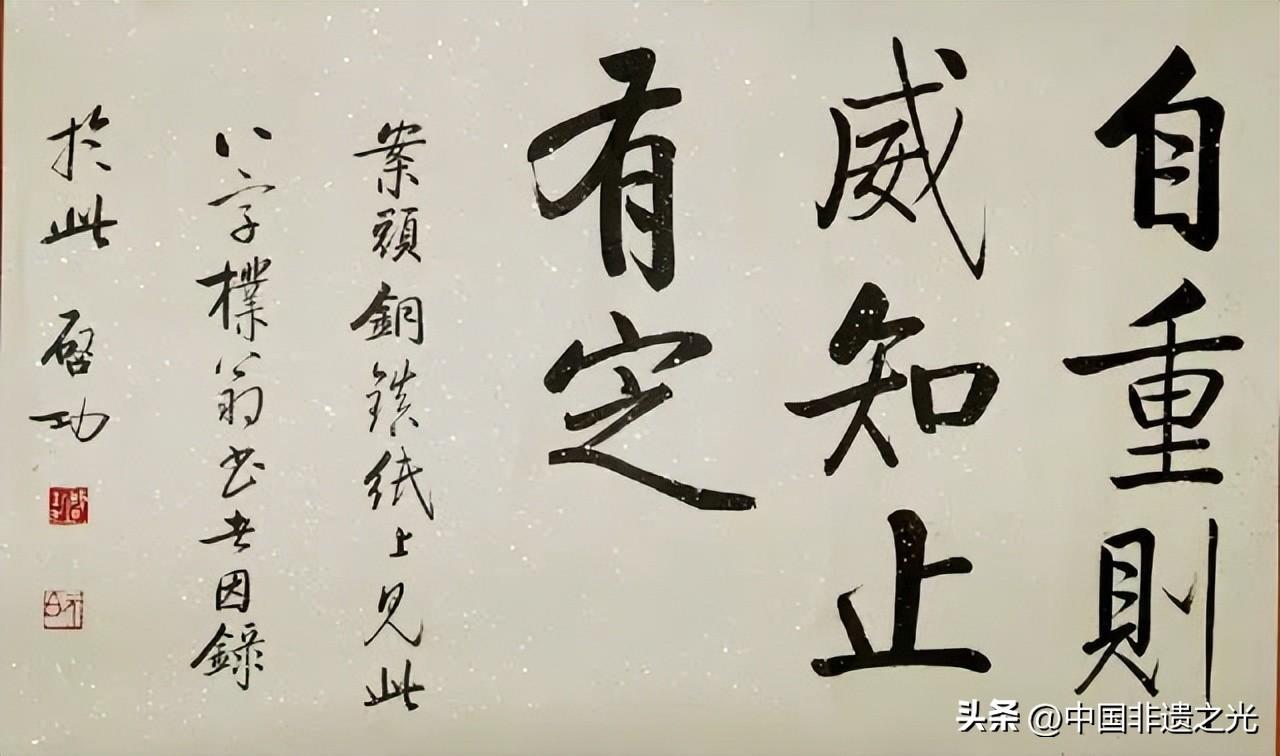 自重則
威知止
有定
案頭銅鎮紙上見此
八字樸翁書者因錄
於此 啓功
头条 @中国非遗之光